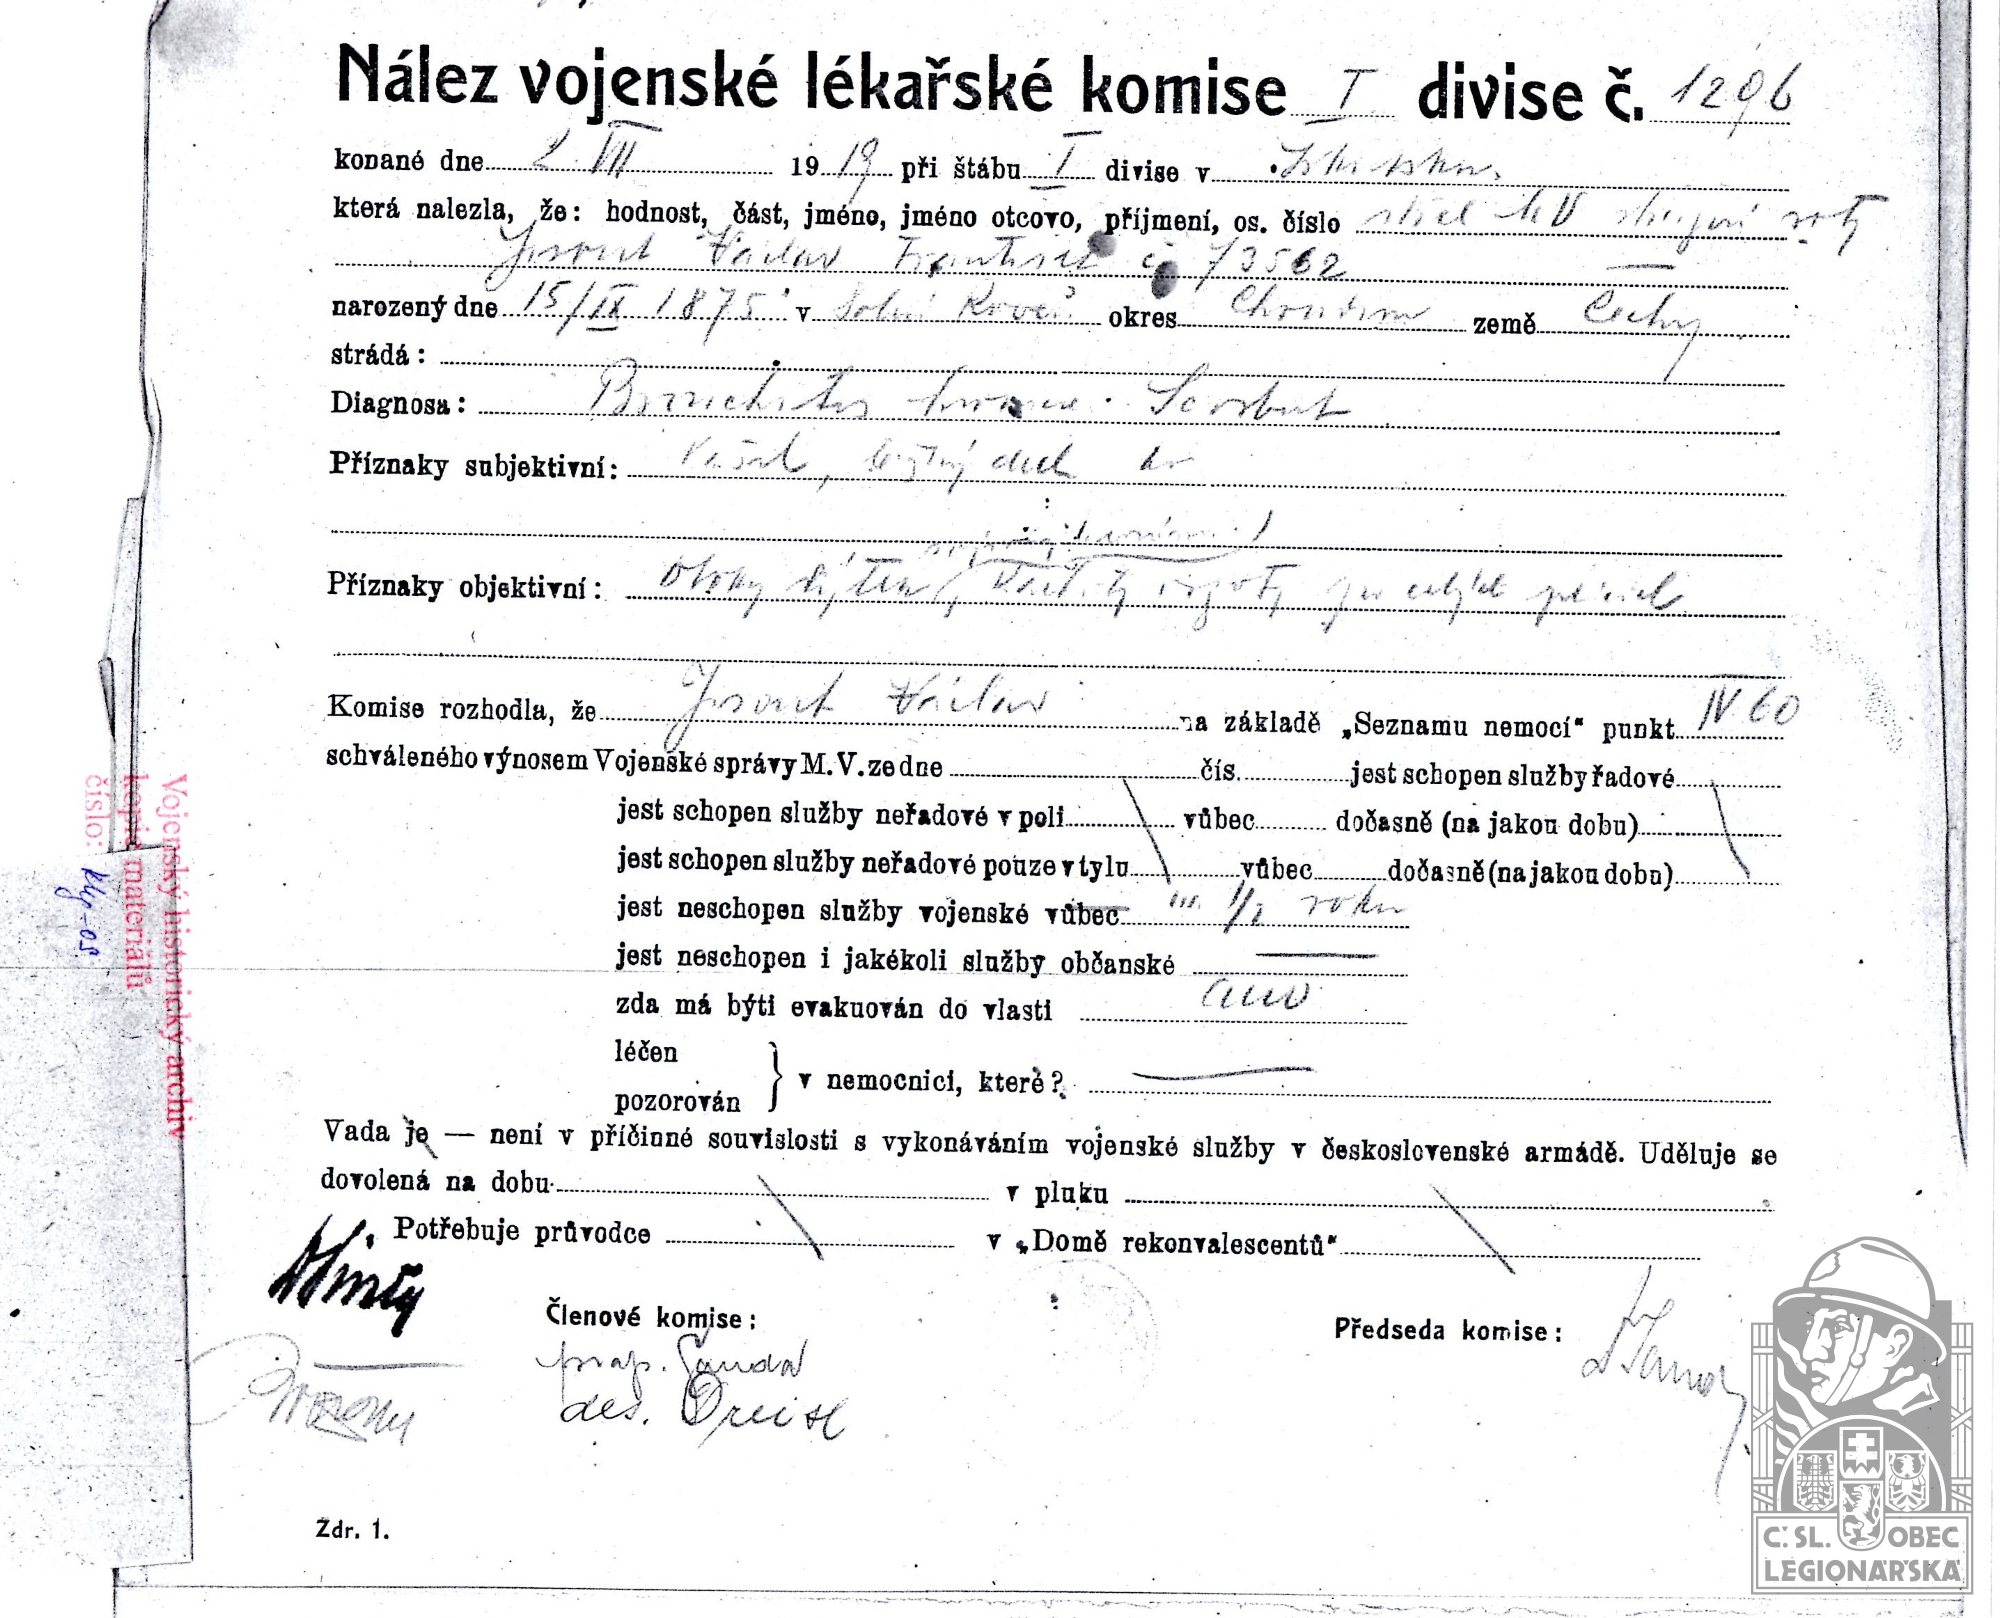 Nález vojenské lékařské komise I divise č. 1296
konané dne 2. VII 1919 při štábu I divise v Irkutsku
která nalezla, že: hodnost, část, jméno, jméno otcovo, příjmení, os. číslo střel roty
Václav František č 73562
narozený dne 15/IX 1875 v Dolní Roveň okres Chrudim země Čechy
strádá:
Diagnosa: Bronchitis Scorbut
Příznaky subjektivní: Kašel, dech
Příznaky objektivní: po celých plicích
Komise rozhodla, že Václav na základě „Seznamu nemocí“ punkt IV 60
schváleného výnosem Vojenské správy M. V. ze dne čís. jest schopen služby řadové
jest schopen služby neřadové v poli vůbec dočasně (na jakou dobu)
jest schopen služby neřadové pouze v tylu vůbec dočasně (na jakou dobu)
jest neschopen služby vojenské vůbec 1/2 roku
jest neschopen i jakékoli služby občanské
zda má býti evakuován do vlasti ano
léčen
pozorován } v nemocnici, které?
Vada je — není v příčinné souvislosti s vykonáváním vojenské služby v československé armádě. Uděluje se
dovolená na dobu v pluku
Potřebuje průvodce v „Domě rekonvalescentů“
Členové komise: Předseda komise:
prap. Sanda
des. Dreisl
Zdr. 1.
Vojenský historický archiv
kopie materiálů
číslo:
Č.SL. OBEC
LEGIONÁŘSKÁ